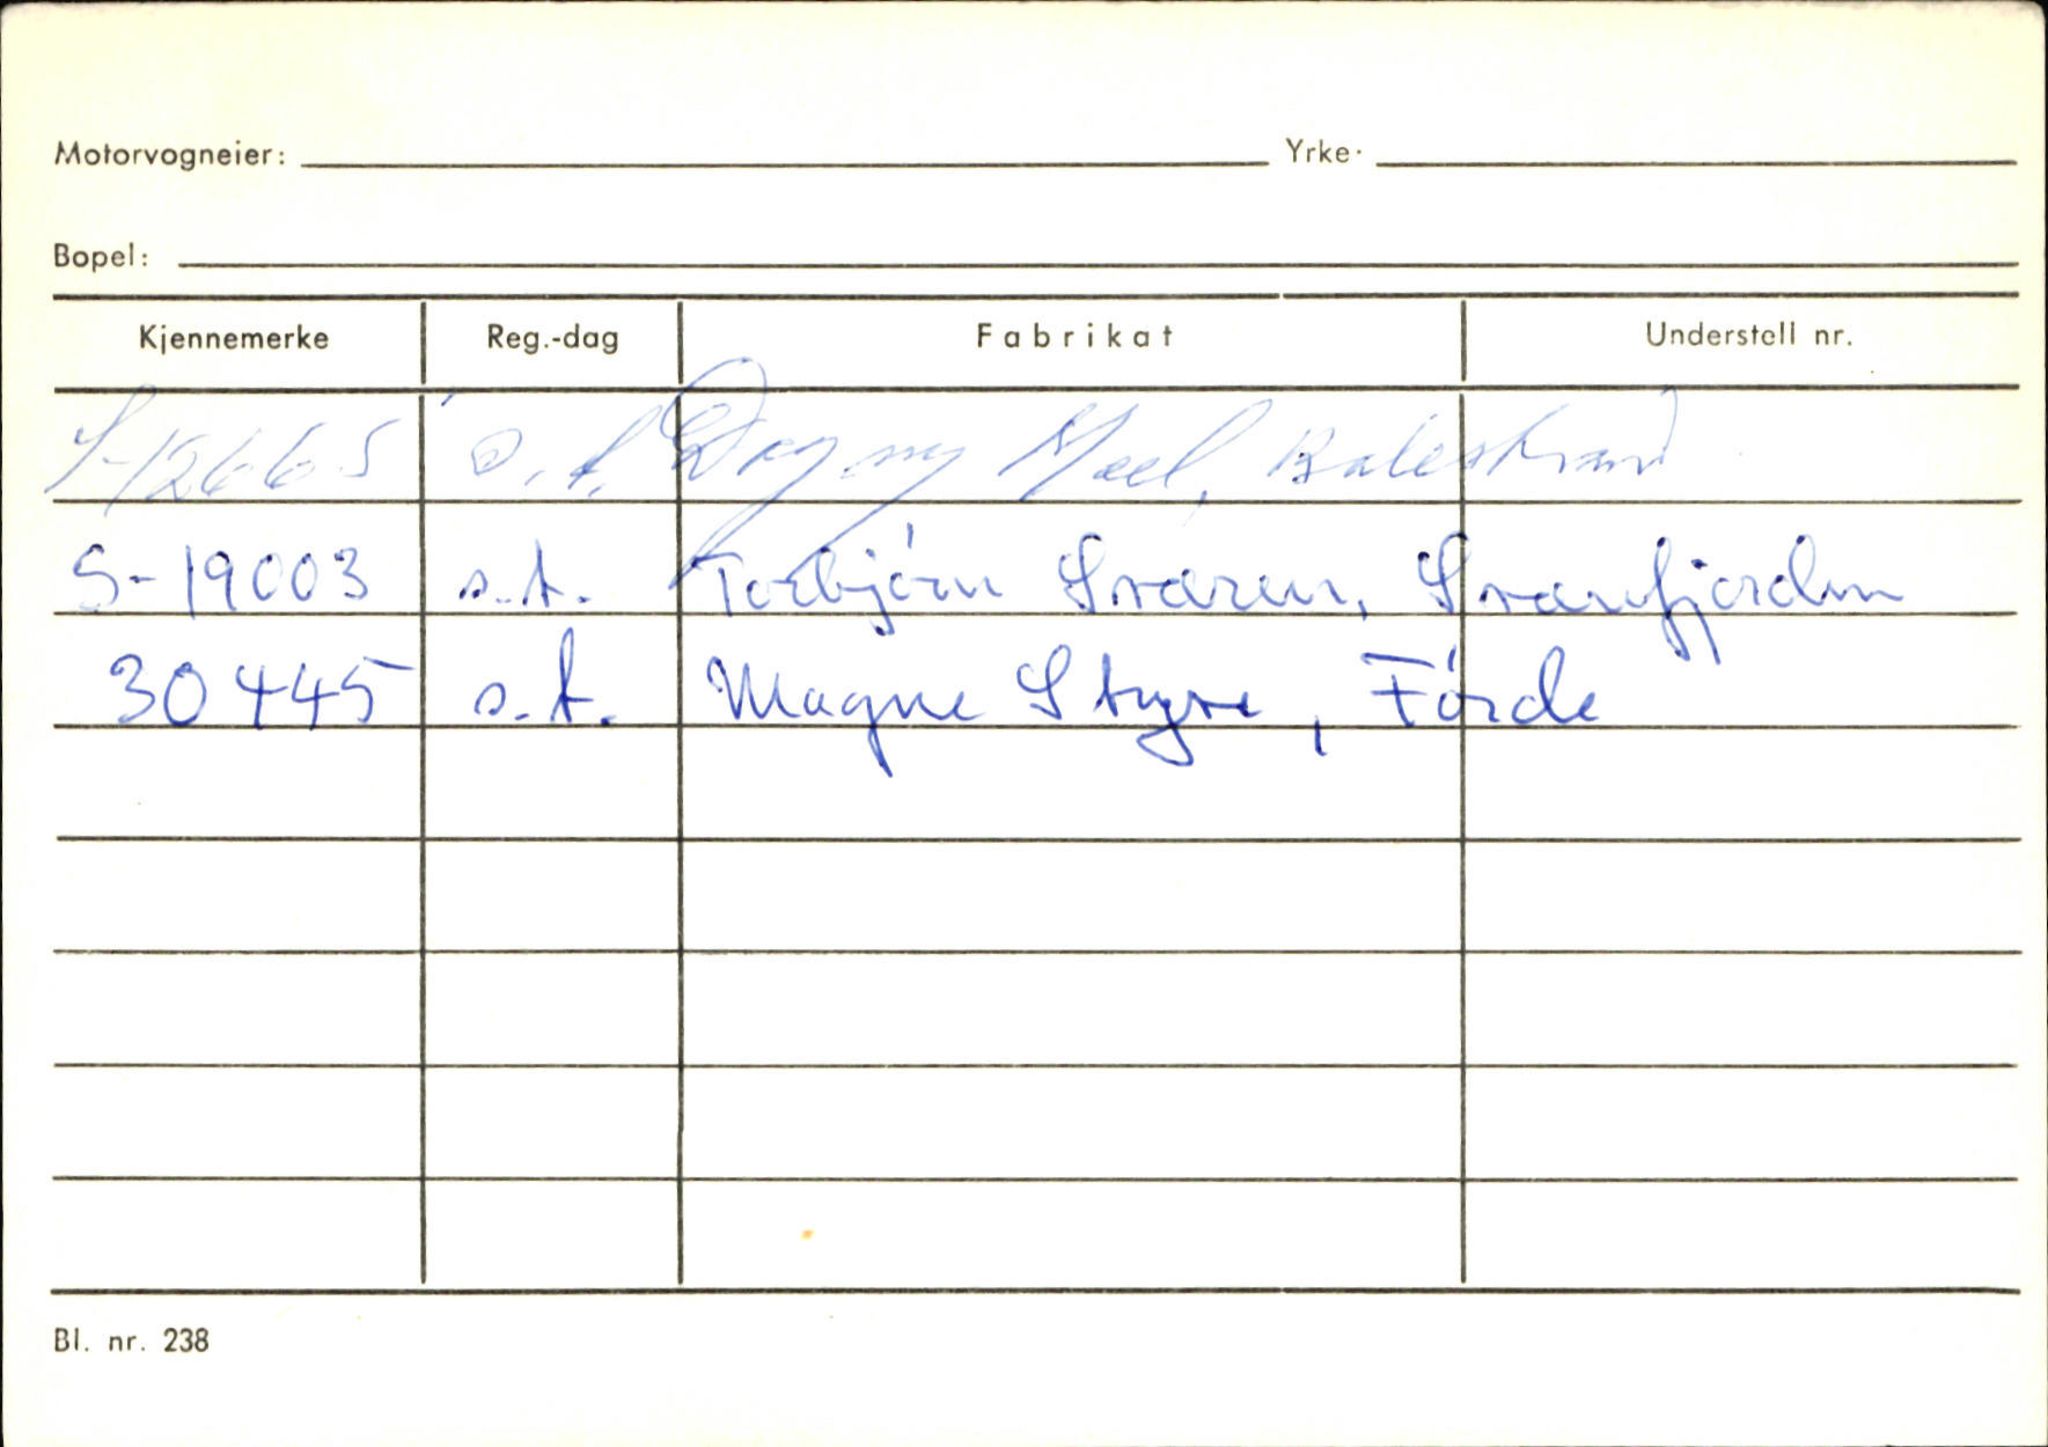 Motorvogneier: Yrke.
Bopel:
Kjennemerke Reg.-dag Fabrikat Understell nr.
S-12665 s.t. Dagny Mæl, Balestrand
S-19003 s.t. Torbjörn Sværen, Sværefjorden
30445 s.t. Magne Styve, Förde
Bl. nr. 238